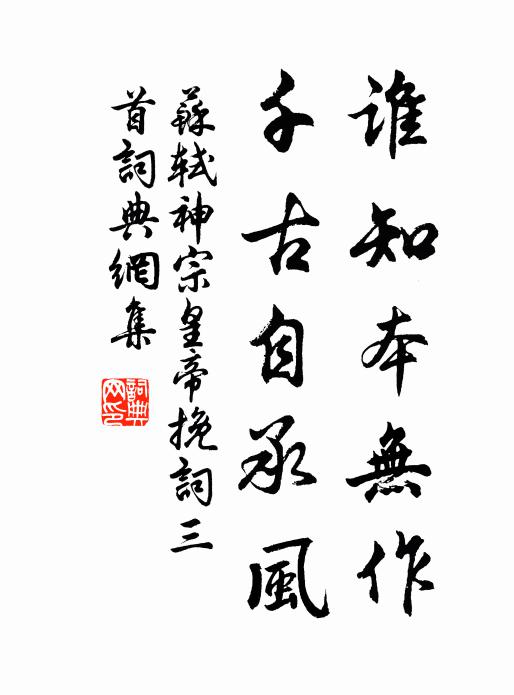 誰知本無作
千古自承風
蘇軾神宗皇帝挽詞三
首詞典網集
詞典
网印